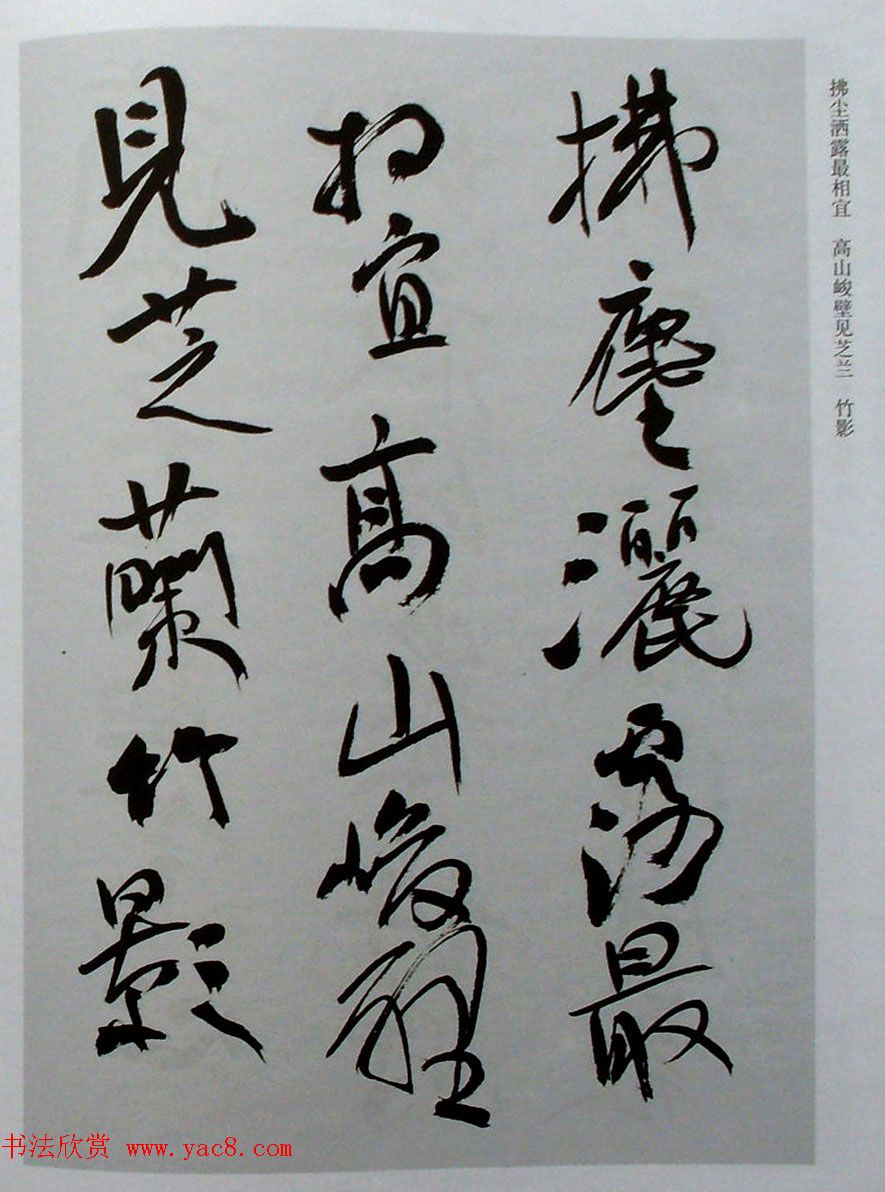 拂尘洒露最相宜　高山峻壁见芝兰　竹影
拂塵灑露最
相宜高山峻壁
見芝蘭竹影
书法欣赏 www.yac8.com